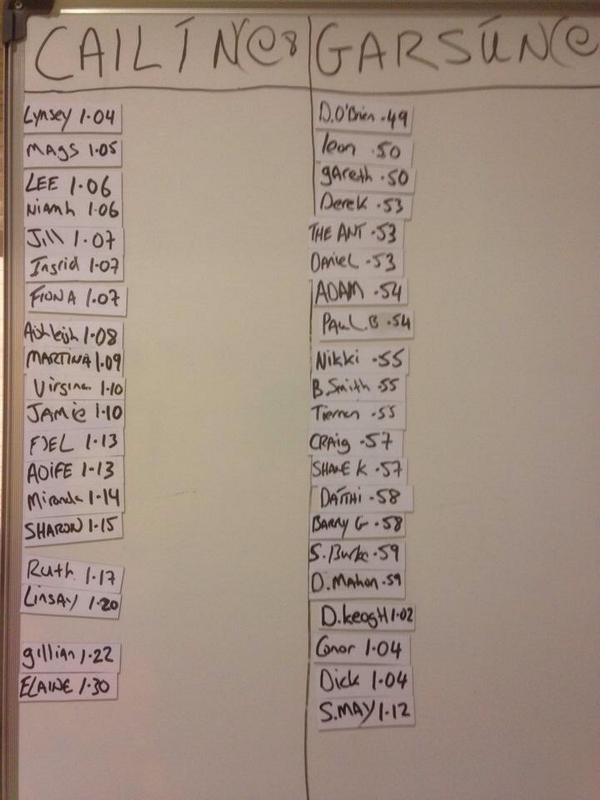 CAILÍN@8
Lynsey 1.04
MAGS 1.05
LEE 1.06
Niamh 1.06
Jill 1.07
Ingrid 1.07
FIONA 1.07
Aishleigh 1.08
MARTINA 1.09
Virginia 1.10
JAMie 1.10
1.13
AOIFE 1.13
Miranda 1.14
SHARON 1.15
Ruth 1.17
LiNSAY 1.20
gillian 1.22
ELAINE 1.30
GARSÚN@
D.O'Brien .49
leon .50
gareth .50
Derek .53
THE ANT .53
Daniel .53
ADAM .54
PAUL.B .54
Nikki .55
B.Smith .55
Tiernan .55
CRAig .57
SHANE K .57
DAITHI .58
BARRY G .58
S.Burke .59
D.Mahon .59
D.keogH 1.02
Conor 1.04
Dick 1.04
S.MAY 1.12